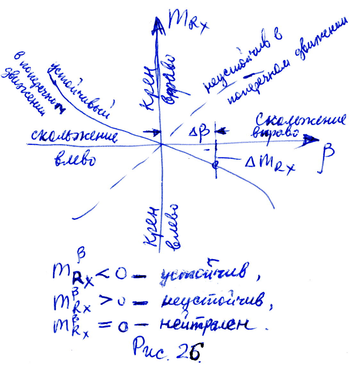 m_Rx
устойчивый
в поперечном
движении
Крен
вправо
неустойчив в
поперечном движении
скольжение
влево
Δβ
Скольжение
вправо
β
Δm_Rx
Крен
влево
m_Rx^β < 0 – устойчив,
m_Rx^β > 0 – неустойчив,
m_Rx^β = 0 – нейтрален.
Рис. 26.